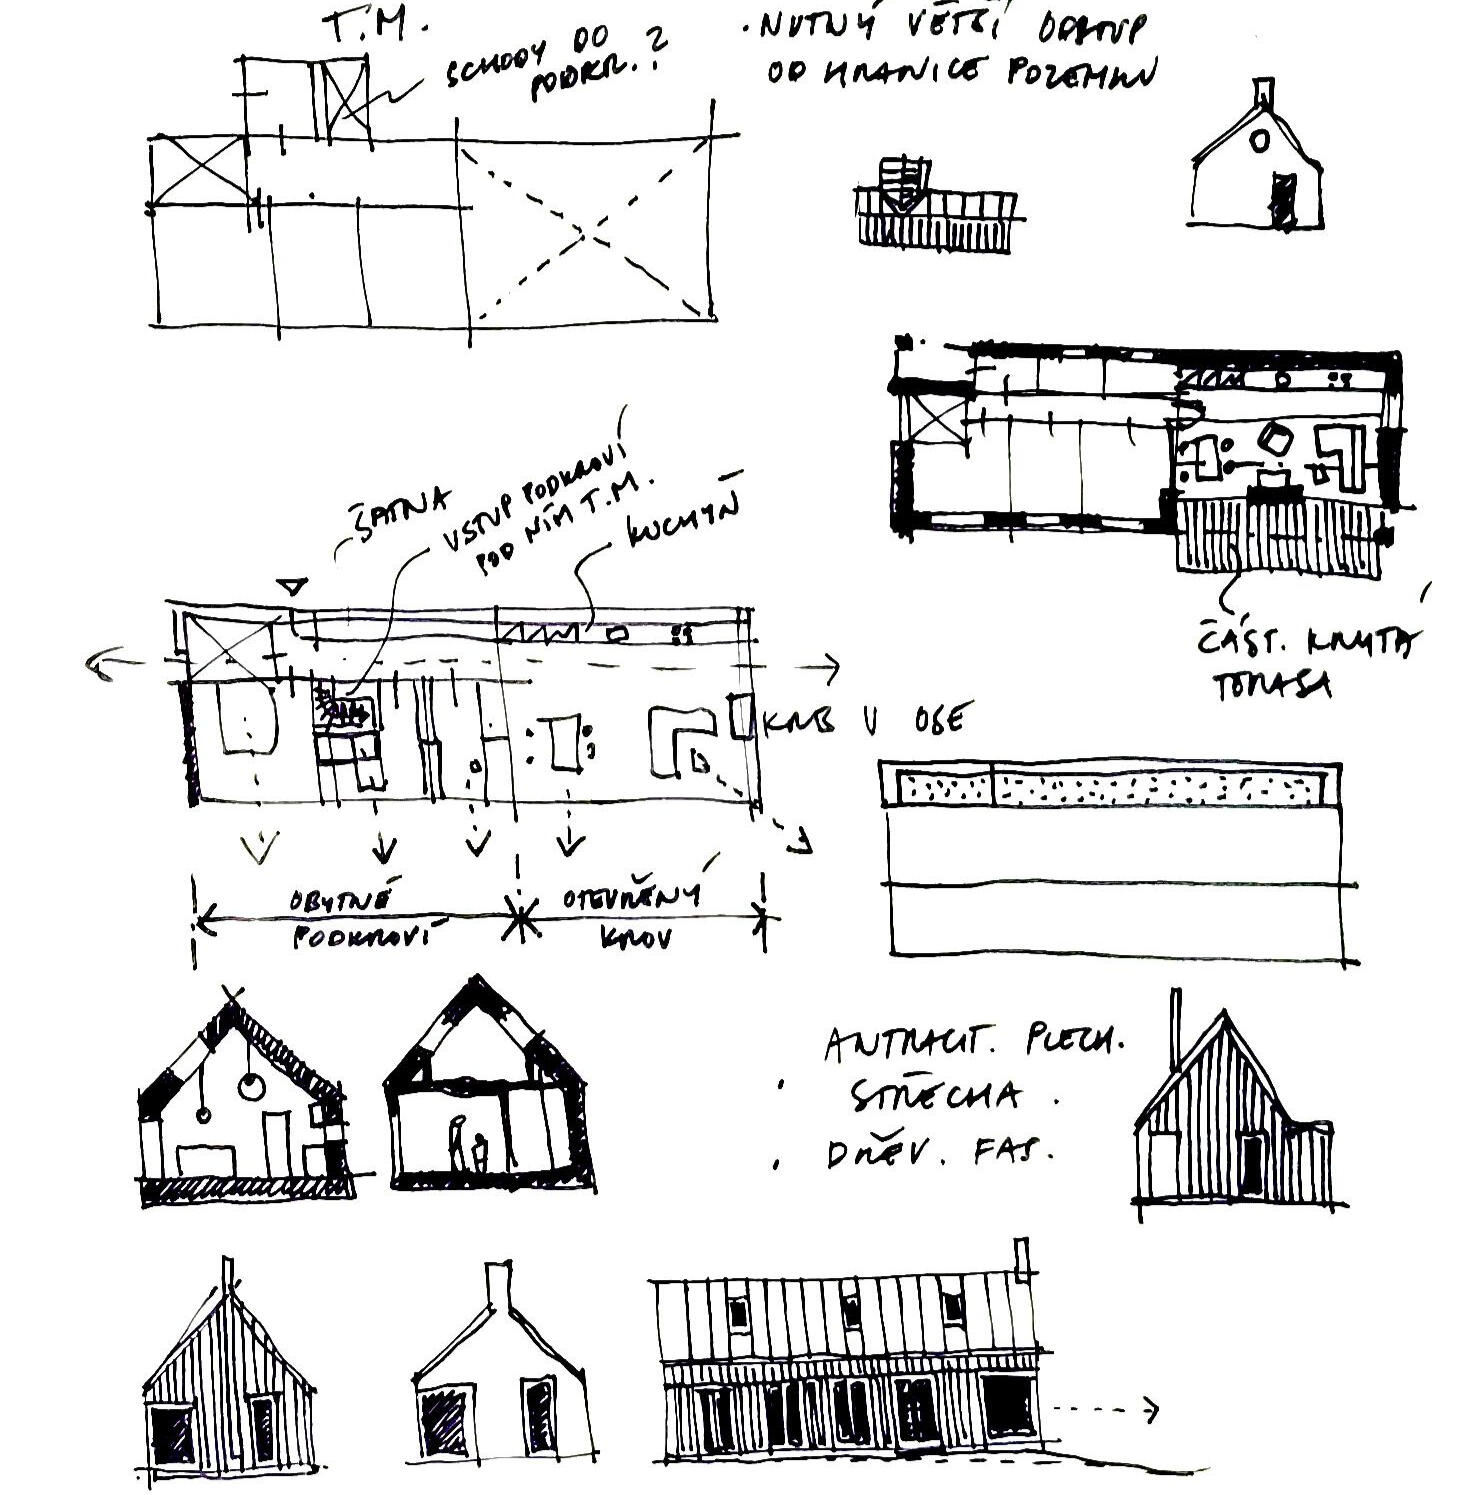 T.M.
SCHODY DO
PODKR.?
• NUTNÝ VĚTŠÍ ODSTUP
OD HRANICE POZEMKU
ŠATNA
VSTUP PODKROVÍ
POD NÍM T.M.
KUCHYŇ
ČÁST. KRYTÁ
TERASA
KRB V OSE
OBYTNÉ
PODKROVÍ
OTEVŘENÝ
KROV
• ANTRACIT. PLECH.
STŘECHA.
• DŘEV. FAS.